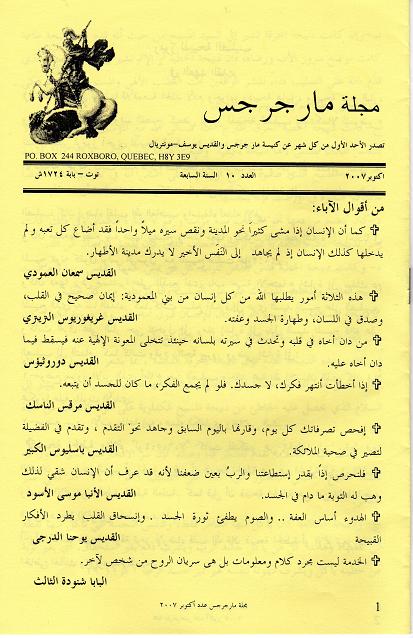 مجلة مار جرجس
تصدر الأحد الأول من كل شهر عن كنيسة مار جرجس والقديس يوسف-مونتريال
PO. BOX 244 ROXBORO, QUEBEC, H8Y 3E9
اكتوبر ٢٠٠٧ العدد ١٠ السنة السابعة توت – بابة ١٧٢٤ش
من أقوال الآباء:
كما أن الإنسان إذا مشى كثيراً نحو المدينة ونقص سيره ميلاً واحداً فقد أضاع كل تعبه ولم
يدخلها كذلك الإنسان إذ لم يجاهد إلى النَفَس الأخير لا يدرك مدينة الأطهار.
القديس سمعان العمودي
هذه الثلاثة أمور يطلبها الله من كل إنسان من بني المعمودية: إيمان صحيح في القلب،
وصدق في اللسان، وطهارة الجسد وعفته. القديس غريغوريوس النزينزي
من دان أخاه في قلبه وتحدث في سيرته بلسانه حينئذ تتخلى المعونة الإلهية عنه فيسقط فيما
دان أخاه عليه. القديس دوروثيؤس
إذا أخطأت أنتهر فكرك، لا جسدك. فلو لم يجمع الفكر، ما كان للجسد أن يتبعه.
القديس مرقس الناسك
إفحص تصرفاتك كل يوم، وقارنها باليوم السابق وجاهد نحو التقدم ، وتقدم في الفضيلة
لتصير في صحبة الملائكة. القديس باسليوس الكبير
فلنحرص إذاً بقدر إستطاعتنا والربُ بعين ضعفنا لأنه قد عرف أن الإنسان شقي لذلك
وهب له التوبة ما دام في الجسد. القديس الأنبا موسى الأسود
الهدوء أساس العفة .. والصوم يطفئ ثورة الجسد . وإنسحاق القلب يطرد الأفكار
القبيحة القديس يوحنا الدرجى
الخدمة ليست مجرد كلام ومعلومات بل هى سريان الروح من شخص لآخر.
البابا شنودة الثالث
مجلة مارجرجس عدد أكتوبر ٢٠٠٧
1